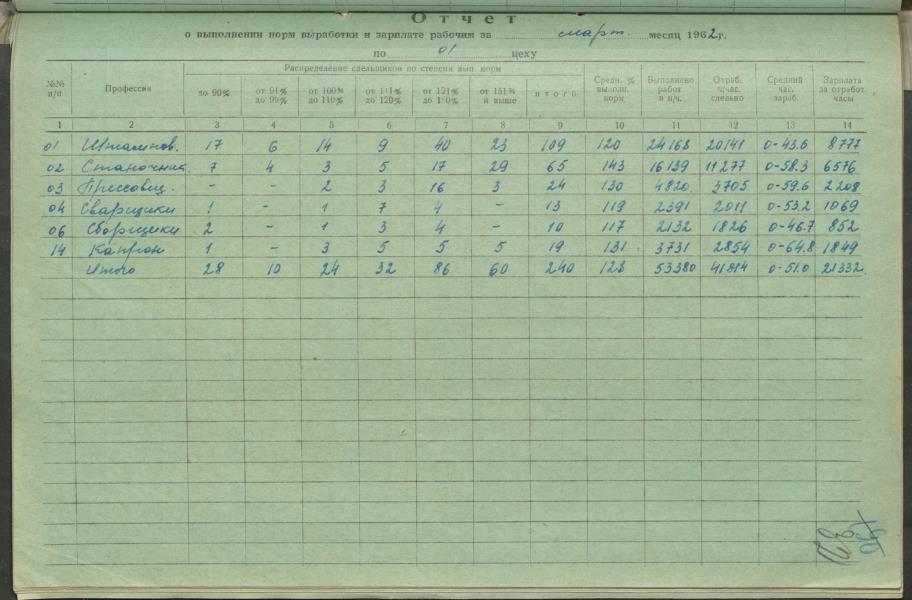 Отчет
о выполнении норм выработки и зарплате рабочим за март месяц 1962г.
по 01 цеху
№№ п/п Профессия Распределение сдельщиков по степени вып. норм Средн. % выполн. норм Выполнено работ в н/ч. Отраб. ч/час. сдельно Средний час. зараб. Зарплата за отработ. часы
до 90% от 91% до 99% от 100% до 110% от 111% до 120% от 121% до 150% от 151% и выше итого
1 2 3 4 5 6 7 8 9 10 11 12 13 14
01 Штампов. 17 6 14 9 40 23 109 120 24168 20141 0-43.6 8777
02 Станочник 7 4 3 5 17 29 65 143 16139 11277 0-58.3 6576
03 Прессовщ. - - 2 3 16 3 24 130 4820 3705 0-59.6 2208
04 Сварщики 1 - 1 7 4 - 13 119 2391 2011 0-53.2 1069
06 Сборщики 2 - 1 3 4 - 10 117 2132 1826 0-46.7 852
14 Капрон 1 - 3 5 5 5 19 131 3731 2854 0-64.8 1849
Итого 28 10 24 32 86 60 240 128 53380 41814 0-51.0 21332